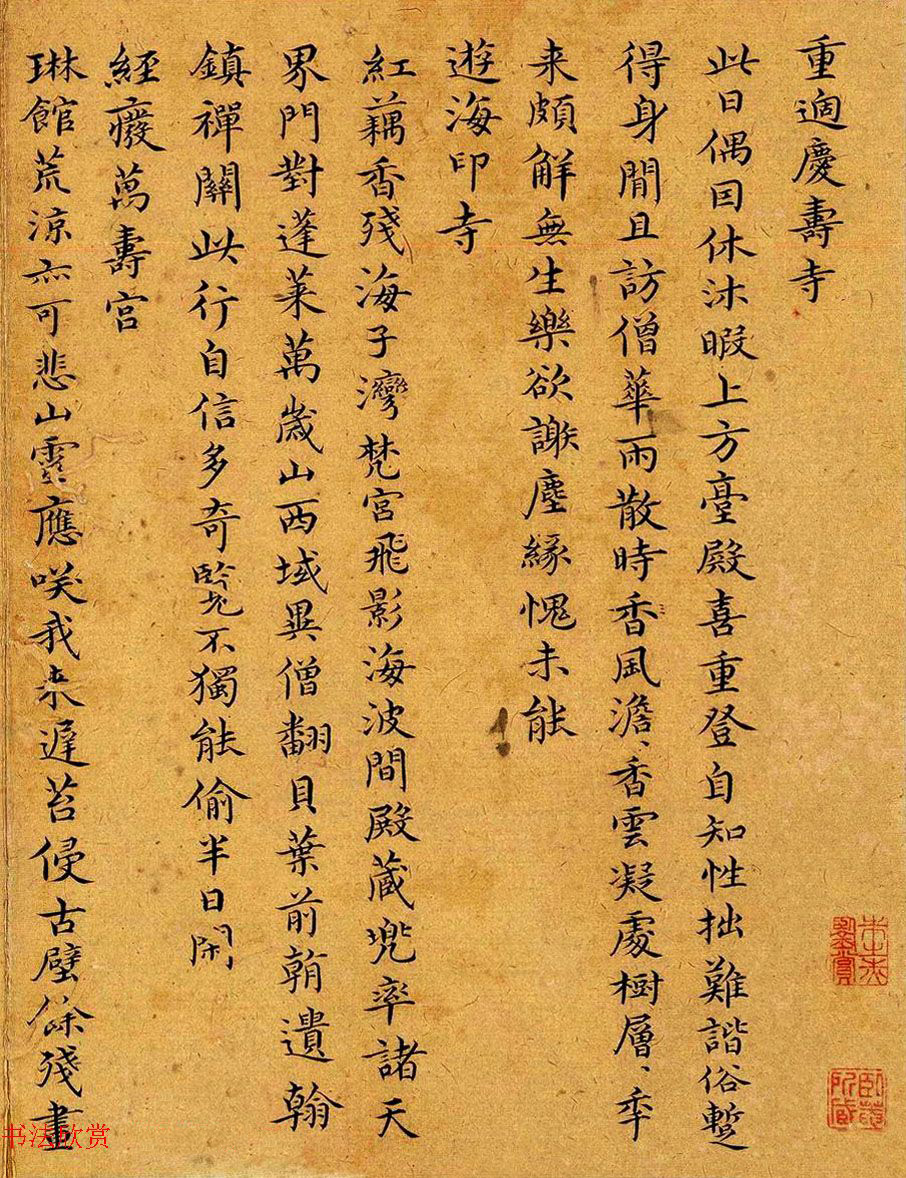 重適慶壽寺
此日偶因休沐暇上方臺殿喜重登自知性拙難諧俗暫
得身閒且訪僧華雨散時香風澹、香雲凝處樹層、年
来頗解無生樂欲謝塵緣愧未能
遊海印寺
紅藕香殘海子灣梵宮飛影海波間殿藏兜率諸天
界門對蓬萊萬歲山西域異僧翻貝葉前朝遺翰
鎮禪關此行自信多奇不獨能偷半日閑
經廢萬壽宮
琳館荒涼亦可悲山靈應咲我来遲苔侵古壁餘殘畫
书法欣赏